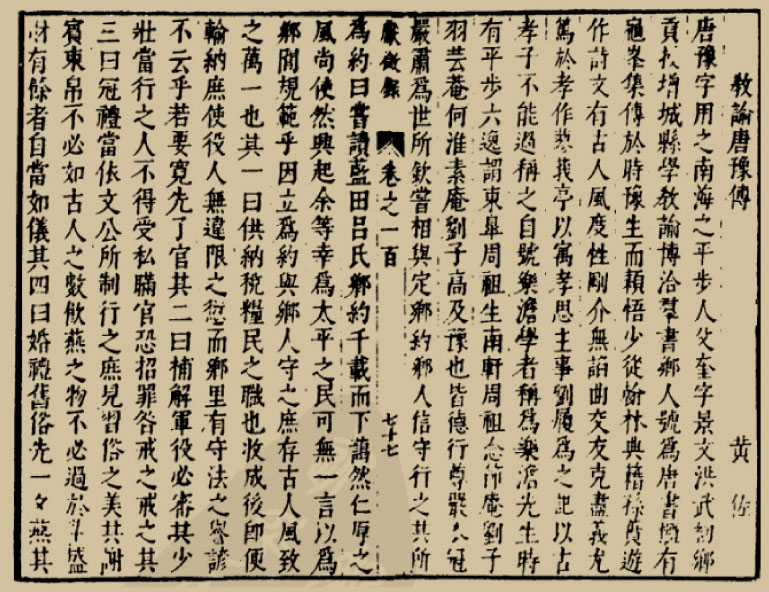 教諭唐豫傳 黄佐
唐豫字用之南海之平步人父奎字景文洪武初鄉
貢授增城縣學教諭博洽羣書鄉人號爲唐書櫥有
龜峯集傳於時豫生而穎悟少從翰林典籍孫蕡遊
作詩文有古人風度性剛介無諂曲交友克盡義尤
篤於孝作蓼莪亭以寓孝思主事劉履爲之記以古
孝子不能過稱之自號樂澹學者稱爲樂澹先生時
有平步六逸謂東臯周祖生南軒周祖念節庵劉子
羽芸菴何淮素庵劉子高及豫也皆德行尊嚴衣冠
嚴肅爲世所欽嘗相與定鄉約鄉人信守行之其所
獻徵錄 卷之一百 七十七
爲約曰嘗讀藍田吕氏鄉約千載而下藹然仁厚之
風尚使然興起余等幸爲太平之民可無一言以爲
鄉閭規範乎因立爲約與鄉人守之庶存古人風致
之萬一也其一曰供納稅糧民之職也收成後即便
輸納庶使役人無違限之愆而鄉里有守法之譽諺
不云乎若要寬先了官其二曰捕解軍役必審其少
壯當行之人不得受私瞞官恐招罪咎戒之戒之其
三曰冠禮當依文公所制行之庶見習俗之美其謝
賓束帛不必如古人之數飲燕之物不必過於丰盛
財有餘者自當如儀其四曰婚禮舊俗先一夕燕其